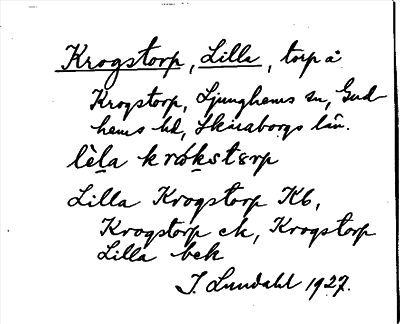 Krogstorp, Lilla, torp å
Krogstorp, Ljunghems sn, Gud-
hems hd, Skaraborgs län.
lèla krókstɛrp
Lilla Krogstorp Kb,
Krogstorp ek, Krogstorp
Lilla bek
J. Lundahl 1927.